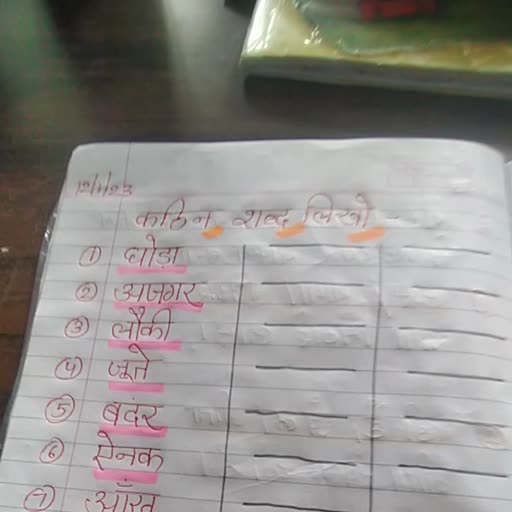 12/1/23
कठिन शब्द लिखो -
① घोड़ा
② अजगर
③ लौकी
④ जूते
⑤ बदंर
⑥ ऐनक
⑦ आँख